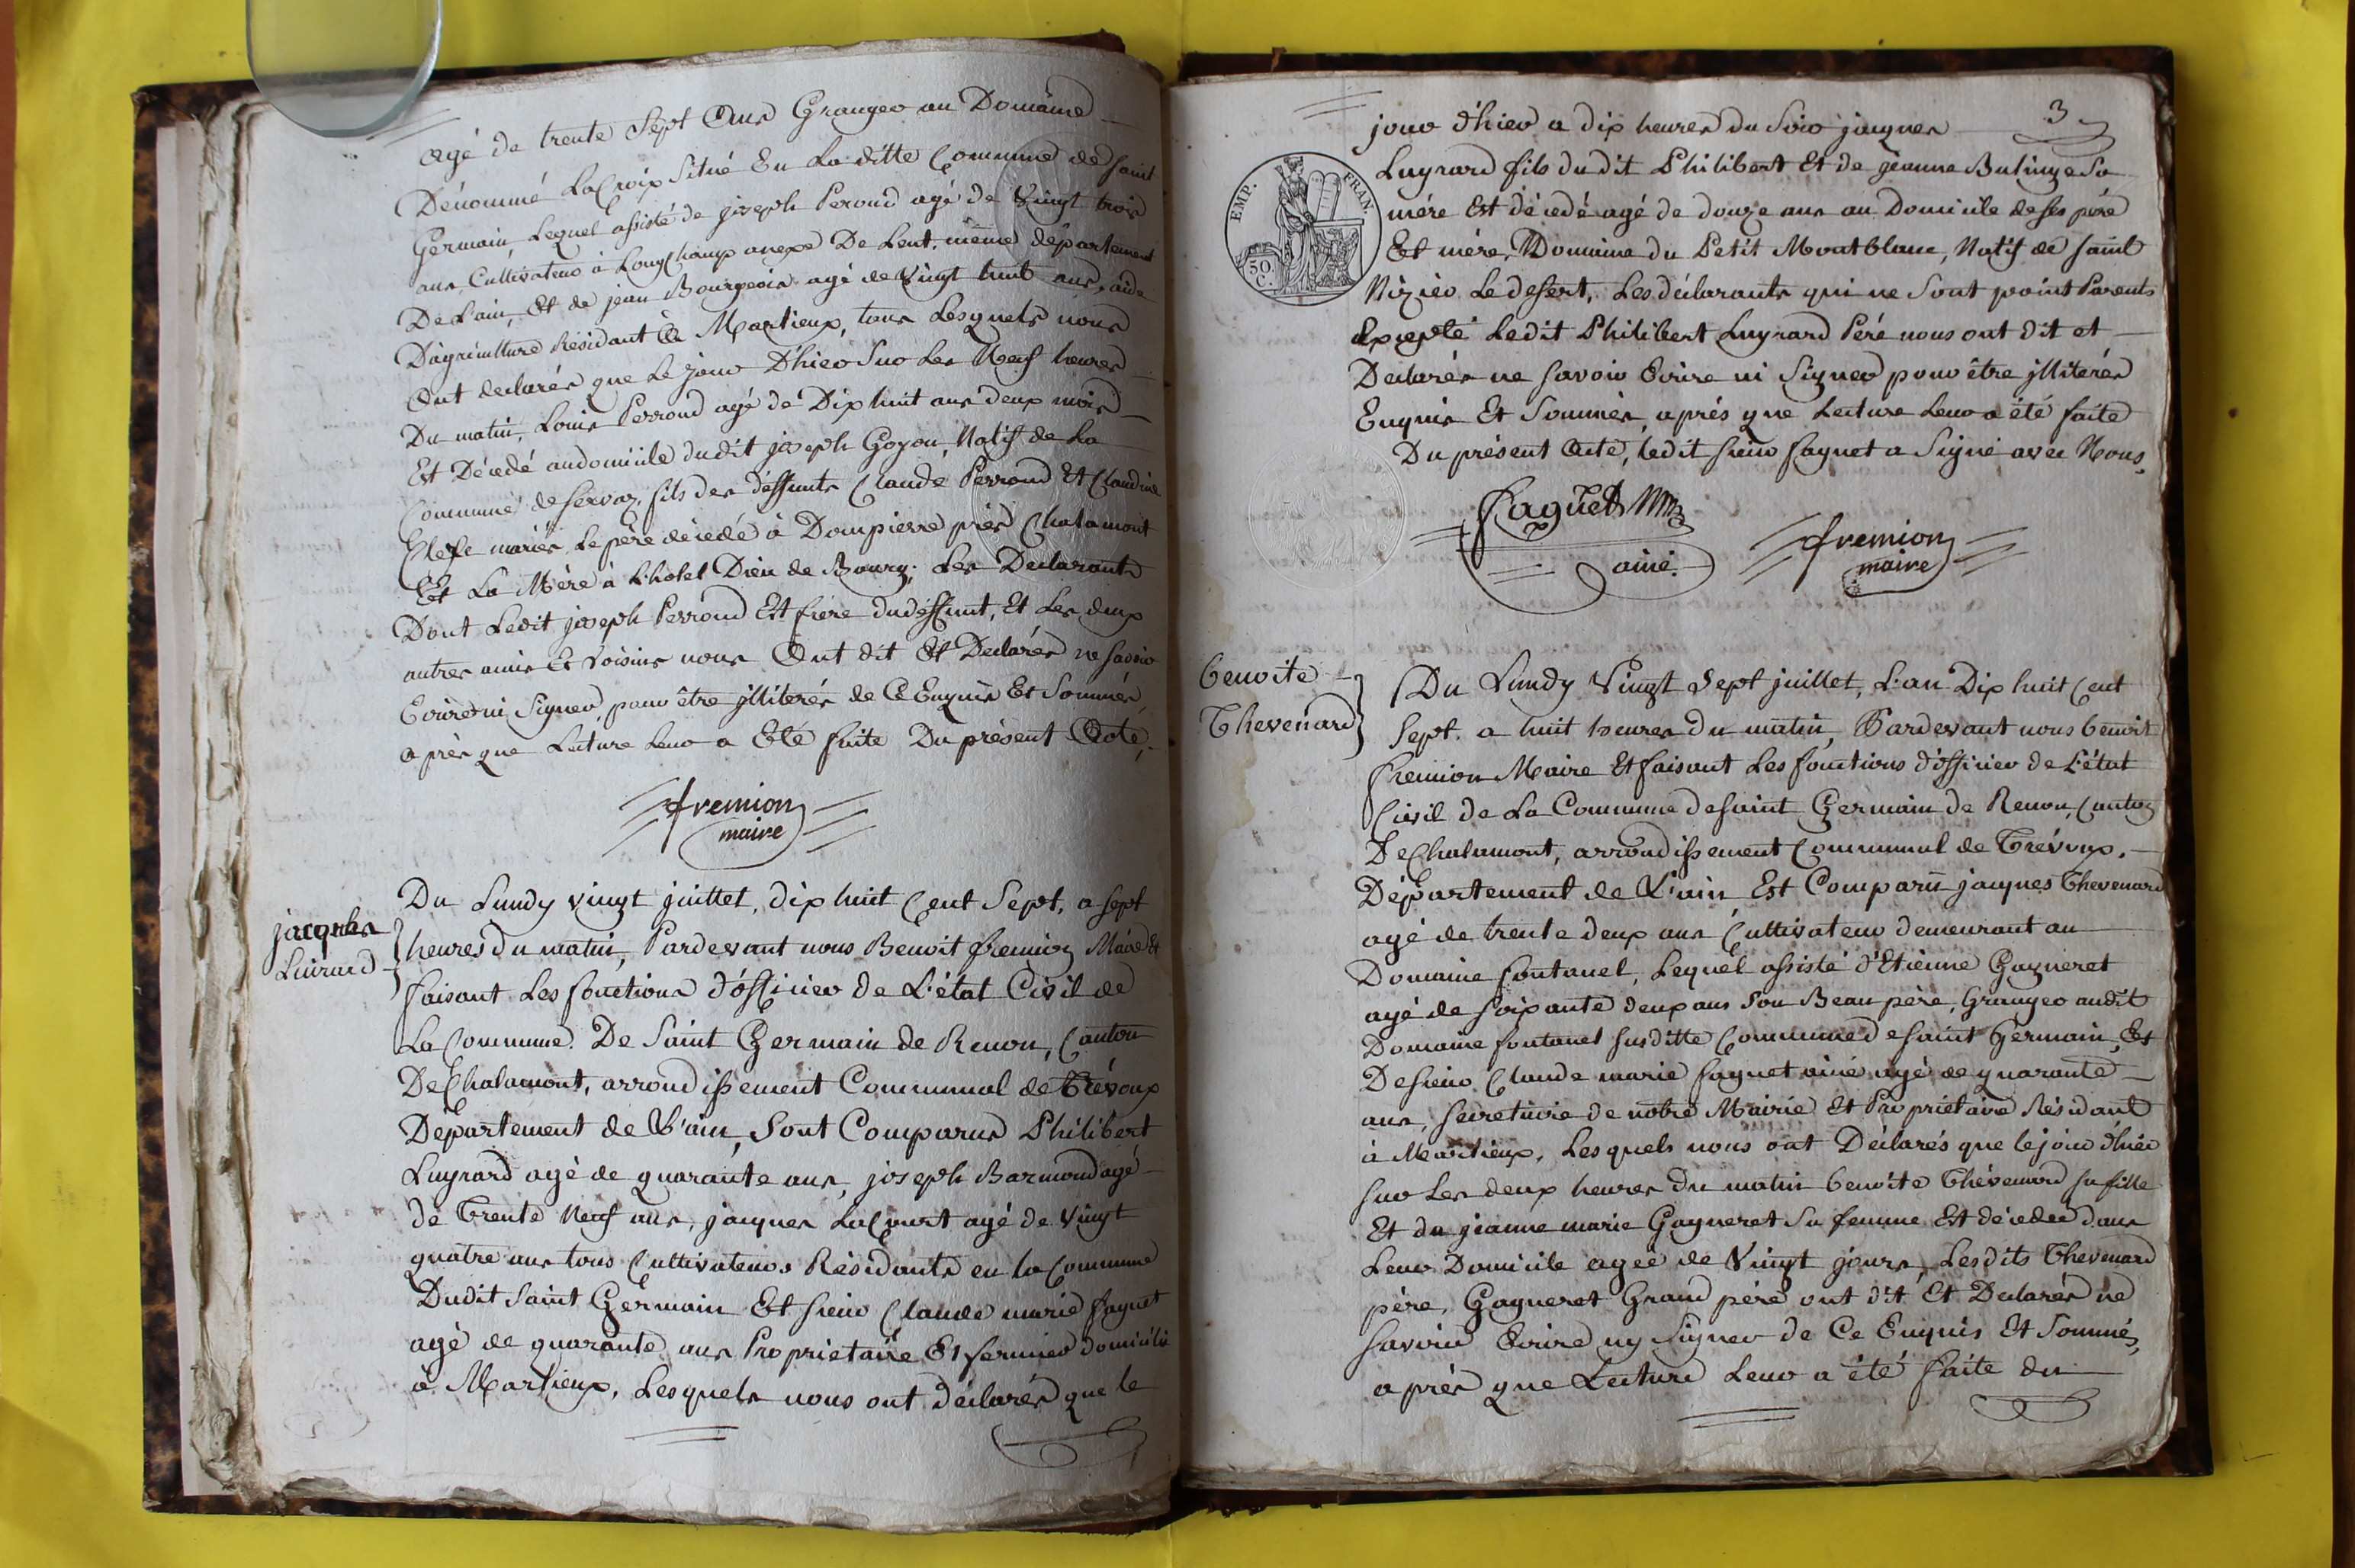 agé de trente Sept Ans Granger au Domaine
Dénommé LaCroix Situé En La ditte Commune de Saint
Germain, Lequel assisté de joseph Peroud agé de Vingt trois
ans, Cultivateur à Longchamp anexe De Lent, même département
De L'ain, Et de jean Bourgeois agé de Vingt huit ans, aide
D'agriculture Résidant à Marlieux, tous Lesquels nous
Ont declarés que Le jour D'hier Sur Les Neuf heures
Du matin, Louis Perroud agé de Dix huit ans deux mois
Est Décedé au domicile dudit joseph Goyon, Natif de La
Commune de Servaz, fils des déffunts Claude Perroud Et Claudine
mariés, Le père décédé à Dompierre près Chalamont
Et La Mère à L'hotel Dieu de Bourg; Les Declarants
Dont Ledit joseph Perroud Est frère du déffunt, Et Les deux
autres amis Et Voisins nous Ont dit Et Declarés ne Savoir
Ecrire ni Signer, pour être illiterés de Ce Enquis Et Sommés,
après que Lecture Leur a Eté faite Du présent Acte,
fremion
maire
jacques
Luirard
Du Lundy vingt juillet, dix huit Cent Sept, a sept
heures du matin, Pardevant nous Benoit fremion Maire Et
faisant Les fonctions d'officier de L'état Civil de
La Commune De Saint Germain de Renon, Canton
De Chalamont, arrondissement Communal de Trévoux
Département de L'ain, Sont Comparus Philibert
Luyrard agé de quarante ans, joseph Barmond agé
de Trente Neuf ans, jacques LaCourt agé de Vingt
quatre ans tous Cultivateurs Résidants en la Commune
Dudit Saint Germain Et Sieur Claude marie faguet
agé de quarante ans Proprietaire Et fermier domicilié
à Marlieux, Lesquels nous ont déclarés que le
3
jour d'hier a dix heures du Soir jacques
Luyrard fils dudit Philibert Et de jeanne Sa
mére Est décedé agé de douze ans au Domicile de Ses père
Et mére, Domaine du Petit Montblanc, Natif de Saint
Nizier Le desert, Les déclarants qui ne Sont point Parents
Excepté Ledit Philibert Luyrard Pére nous ont dit et
Declarés ne savoir Ecrire ni Signer pour être illiterés
Enquis Et Sommés, aprés que Lecture Leur a été faite
Du présent Acte, ledit Sieur faguet a Signé avec Nous,
EMP. FRAN.
50.
C.
Faguet
ainé.
fremion
maire
benoite
Thevenard
Du Lundy Vingt Sept juillet, L'an Dix huit Cent
Sept, a huit heures du matin, Pardevant nous benoit
fremion Maire Et faisant Les fonctions d'officier de L'état
Civil de La Commune de Saint Germain de Renon, Canton
De Chalamont, arrondissement Communal de Trévoux,
Département de L'ain, Est Comparu jacques Thevenard
agé de trente deux ans Cultivateur demeurant au
Domaine fontanel, Lequel assisté d'Etienne Gagneret
agé de soixante deux ans Son Beau père, Granger audit
Domaine fontanel susditte Commune de saint Germain, Et
De sieur Claude marie faguet ainé agé de quarante
ans, secretaire de notre Mairie Et Proprietaire Résidant
à Marlieux, Lesquels nous ont Déclarés que le jour d'hier
sur Les deux heures du matin benoite Thevenard sa fille
Et de jeanne marie Gagneret Sa femme Est décedée dans
Leur Domicile agée de Vingt jours, Lesdits Thevenard
père, Gagneret Grand père ont dit Et Declarés ne
savoir Ecrire ny Signer de Ce Enquis Et Sommés,
après que Lecture Leur a été faite du